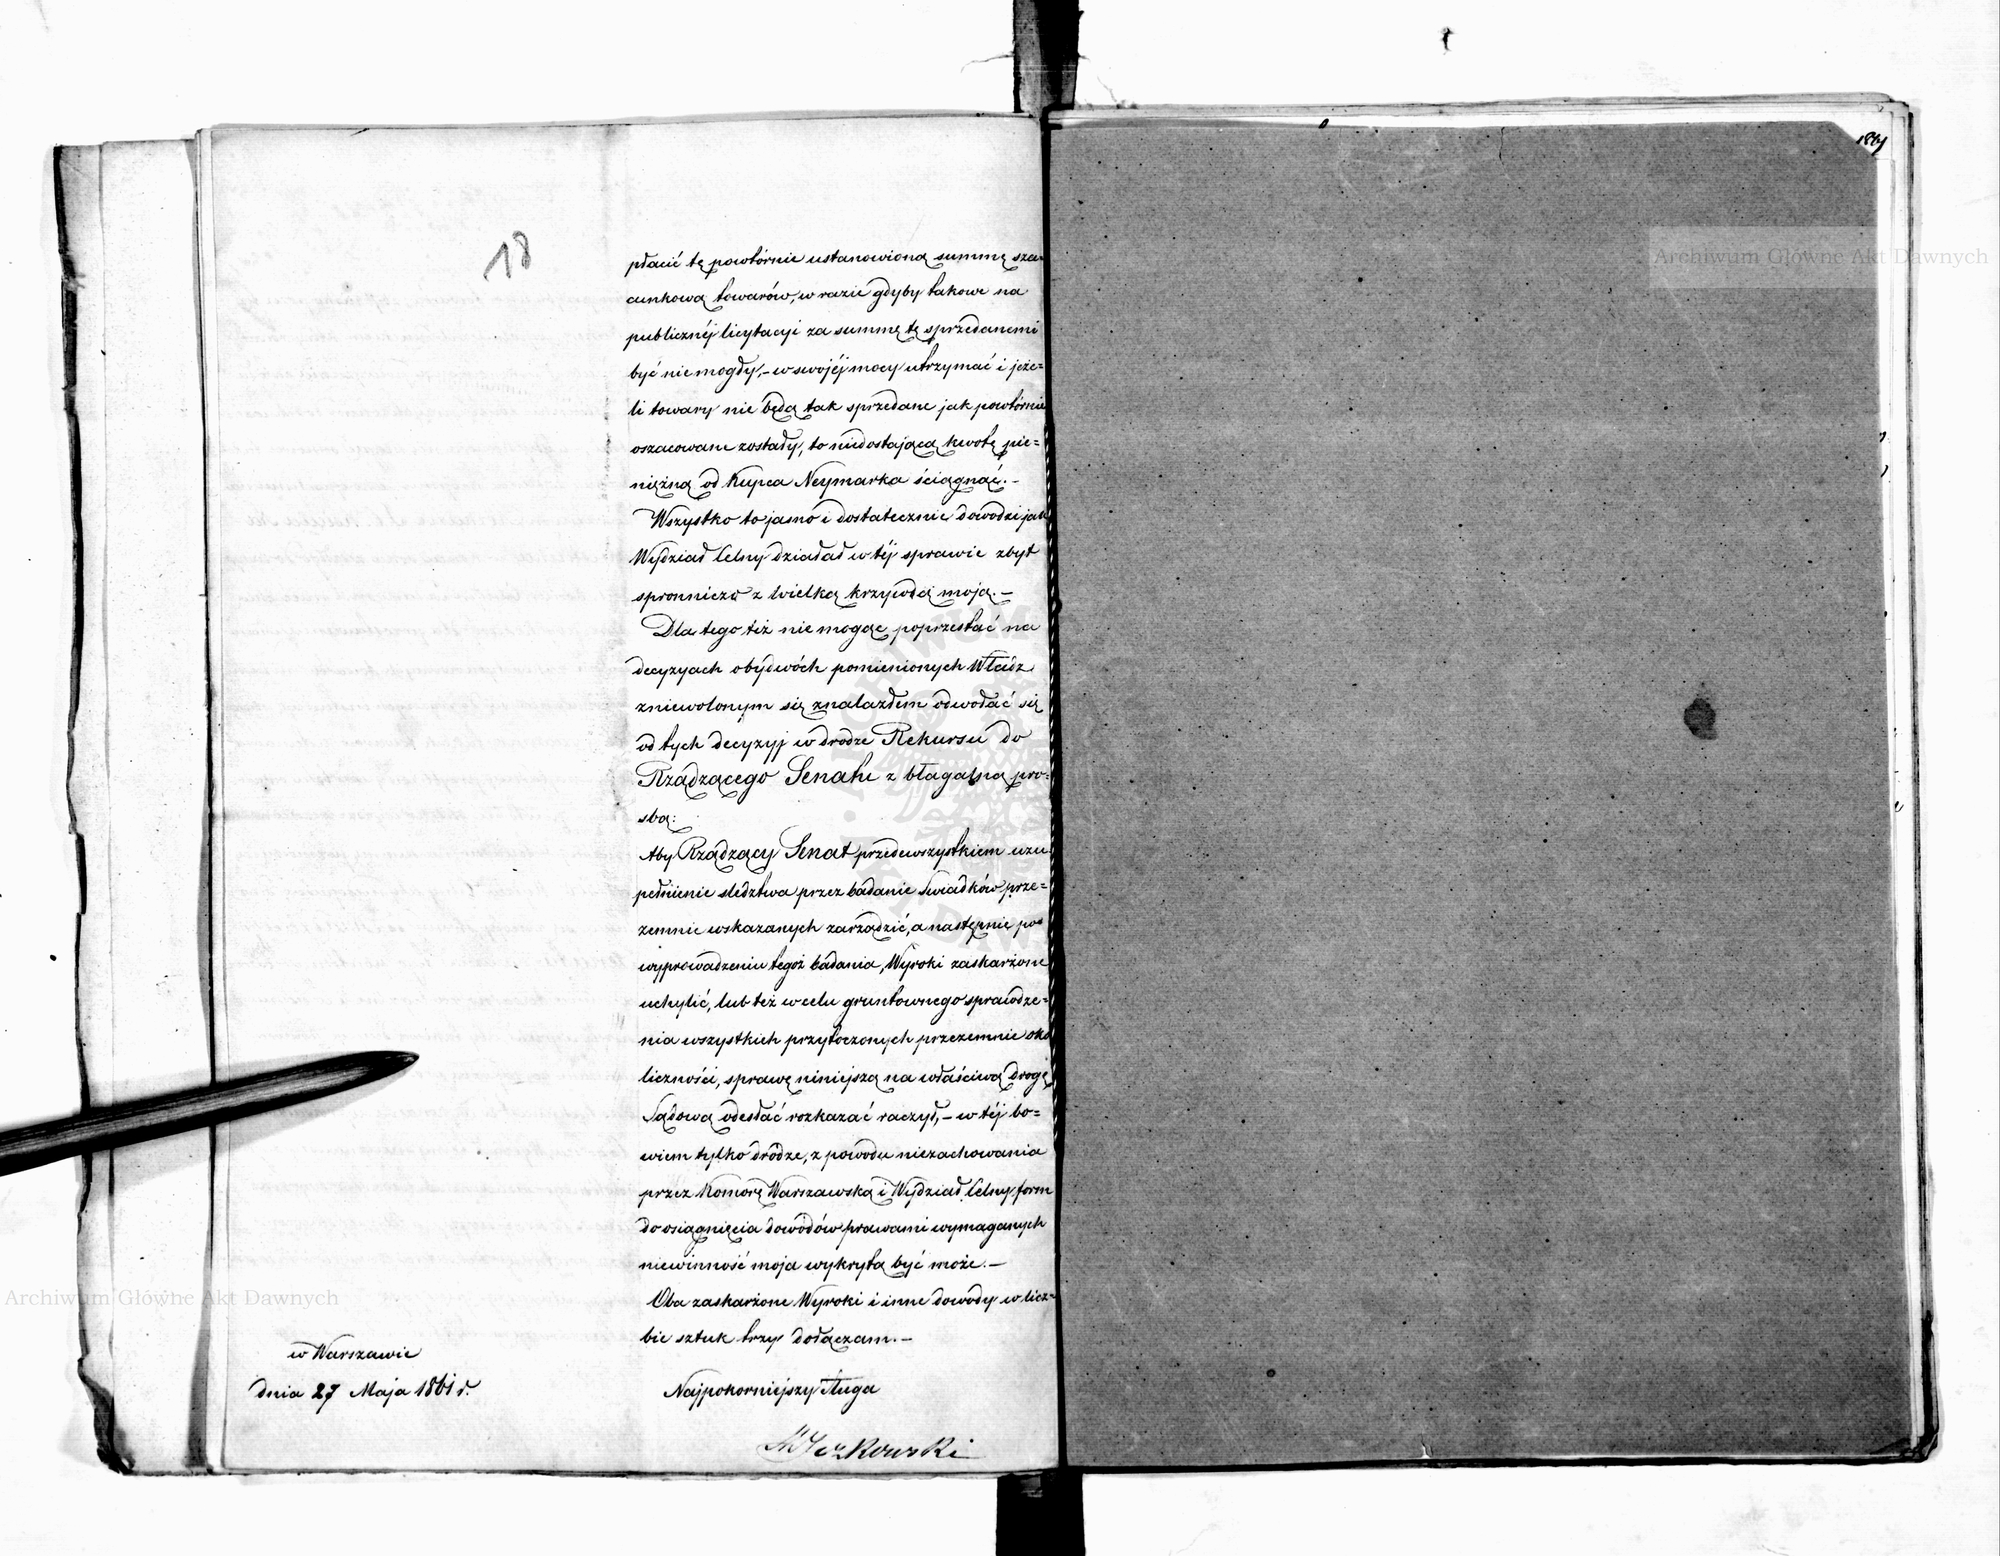 18
płacić tę powtórnie ustanowioną summę sza-
cunkową towarów, w razie gdyby takowe na
publicznéj licytacyi za summę tę sprzedanemi
być nie mogły, – w swojéj mocy utrzymać i jeże=
li towary nie będą tak sprzedane jak powtórnie
oszacowane zostały, to niedostającą kwotę pie=
niężną od Kupca Neymarka ściągnąć. –
Wszystko to jasno i dostatecznie dowodzi jak
Wydział Celny działał w téj sprawie zbyt
stronniczo z wielką krzywdą moją. –
Dla tego téż nie mogąc poprzestać na
decyzyach obydwóch pomienionych Władz
zniewolonym się znalazłem odwołać się
od tych decyzyj w drodze Rekursu do
Rządzącego Senatu z błagalną pro=
śbą:
Aby Rządzący Senat przedewszystkiem uzu
pełnienie śledztwa przez badanie świadków prze=
zemnie wskazanych zarządzić, a następnie po
wyprowadzeniu tegoż badania, Wyroki zaskarżone
uchylić, lub też w celu gruntownego sprawdze=
nia wszystkich przytoczonych przezemnie oko
liczności, sprawę niniejszą na właściwą drogę
Sądową odesłać rozkazać raczył, – w téj bo=
wiem tylko drodze, z powodu niezachowania
przez Komorę Warszawską i Wydział Celny form
do osiągnięcia dowodów prawami wymaganych
niewinność moja wykrytą być może. –
Oba zaskarżone Wyroki i inne dowody w licz=
bie sztuk trzy dołączam. –
w Warszawie
dnia 27 Maja 1861 r.
Najpokorniejszy sługa
Archiwum Główne Akt Dawnych
Archiwum Główne Akt Dawnych